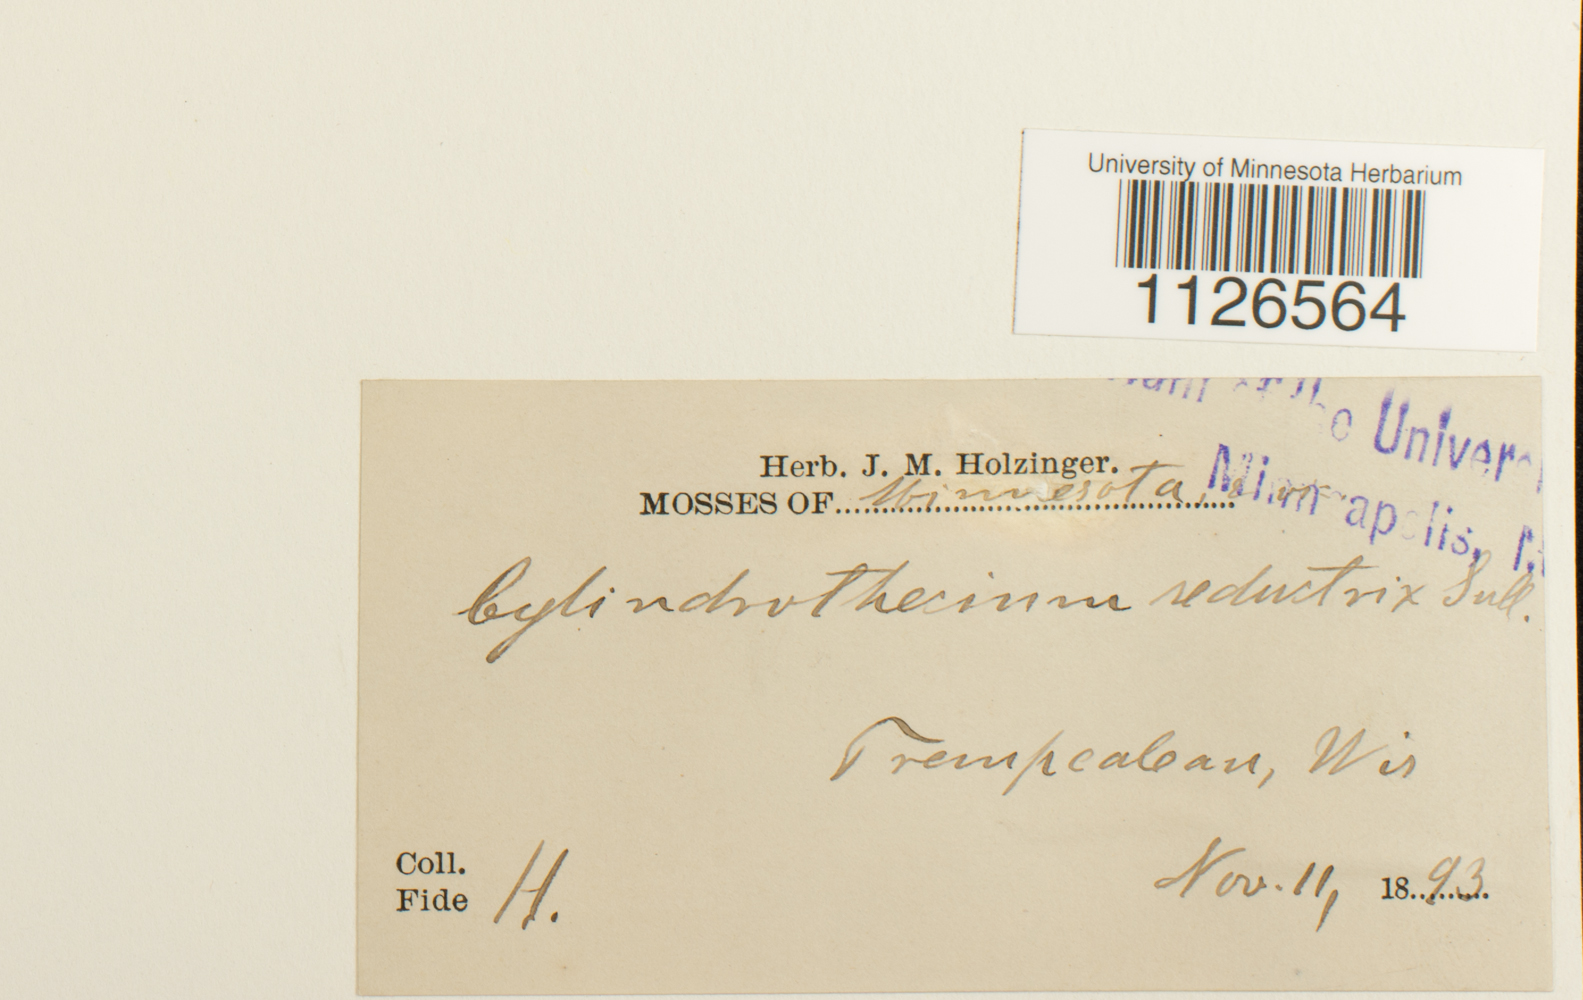 University of Minnesota Herbarium
1126564
the Univer
Minneapolis,
Herb. J. M. Holzinger.
MOSSES OF Minnesota,
Cylindrothecium seductrix Sull.
Trempealeau, Wis
Coll.
Fide H.
Nov. 11, 1893